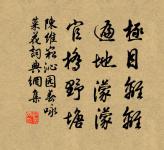 極目離離
遍地濛濛
官橋野塘
陳維崧沁園春詠
菜花詞典網集